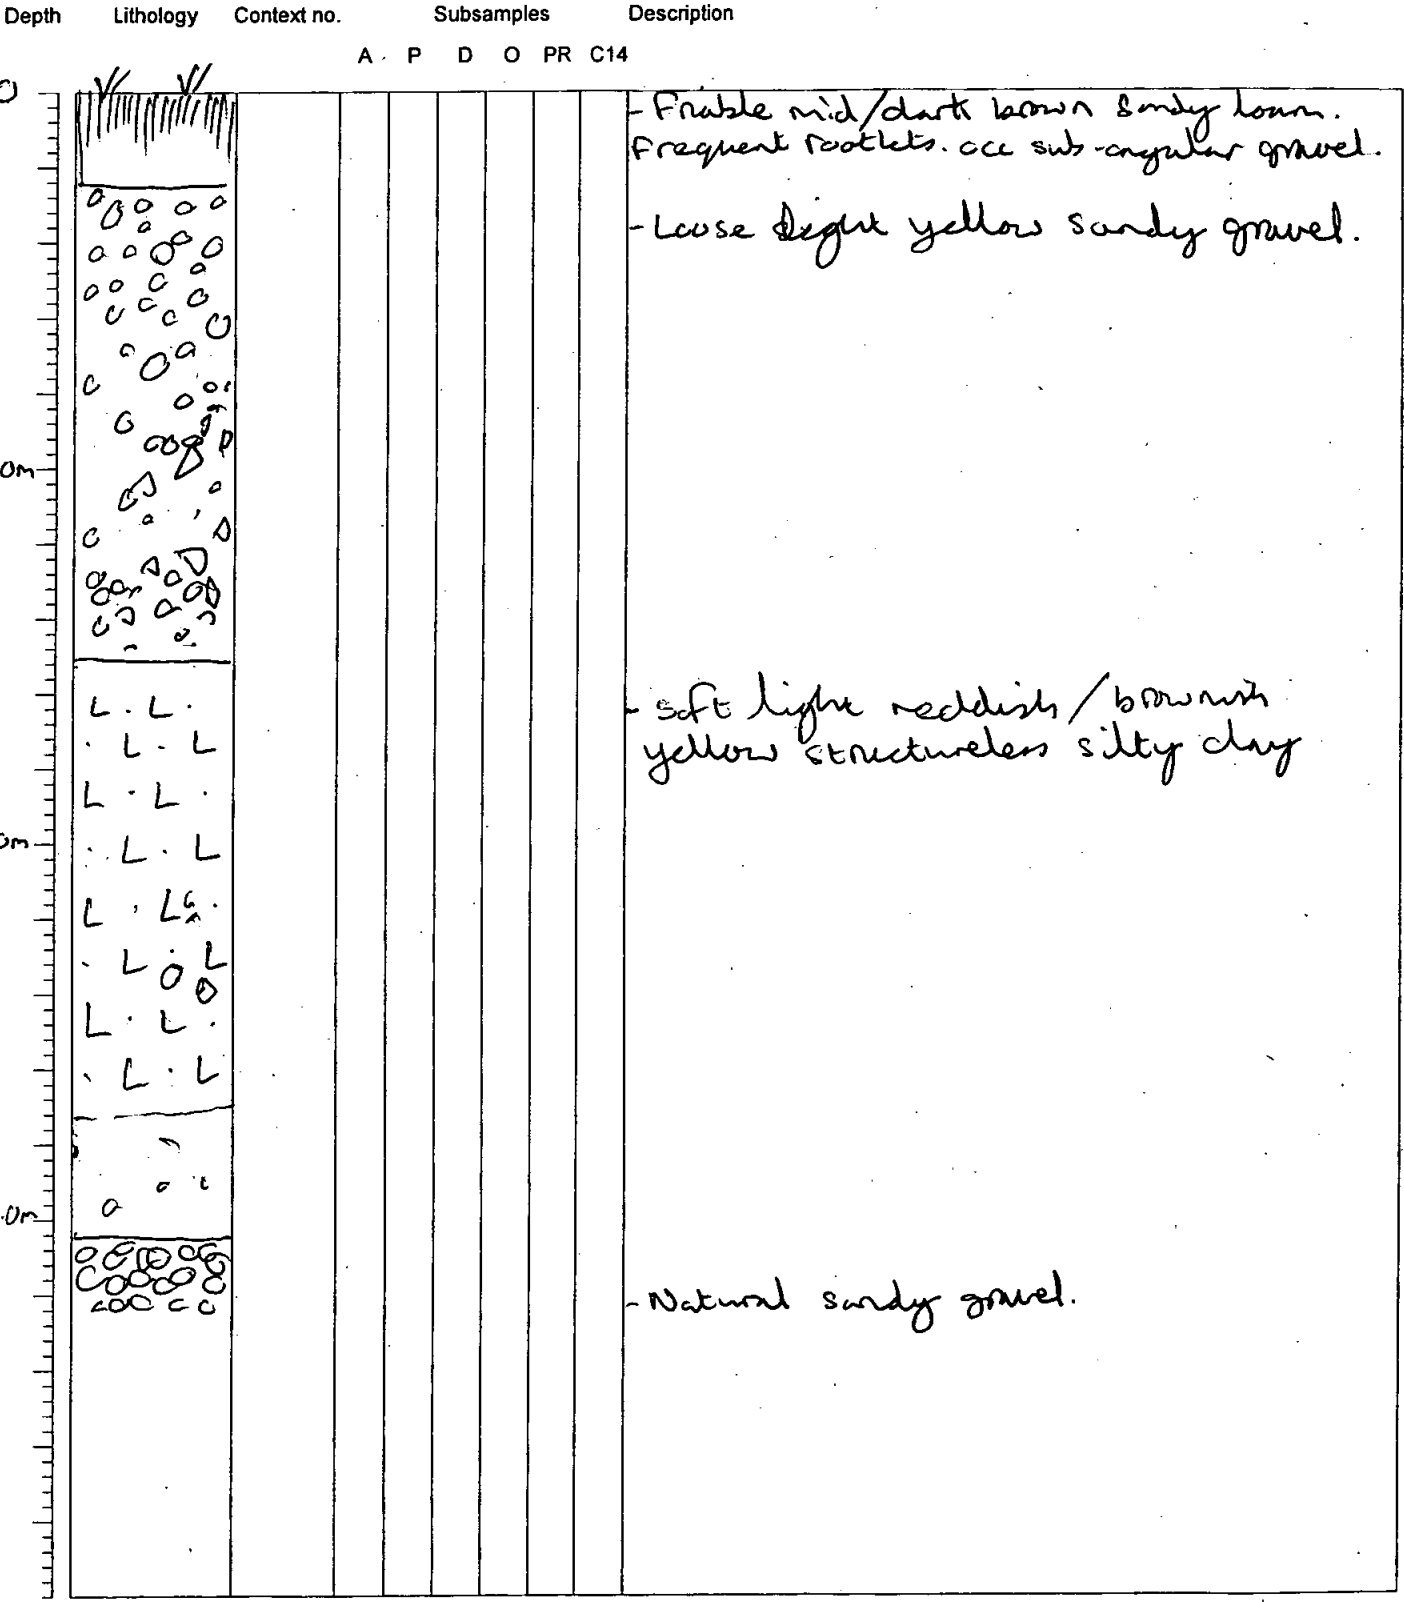 Depth Lithology Context no. Subsamples Description
A P D O PR C14
0
- Friable mid/dark brown sandy loam.
Frequent rootlets. occ sub-angular gravel.
- Loose light yellow sandy gravel.
0m
- soft light reddish/brownish
yellow structureless silty clay
0m
.0m
- Natural sandy gravel.